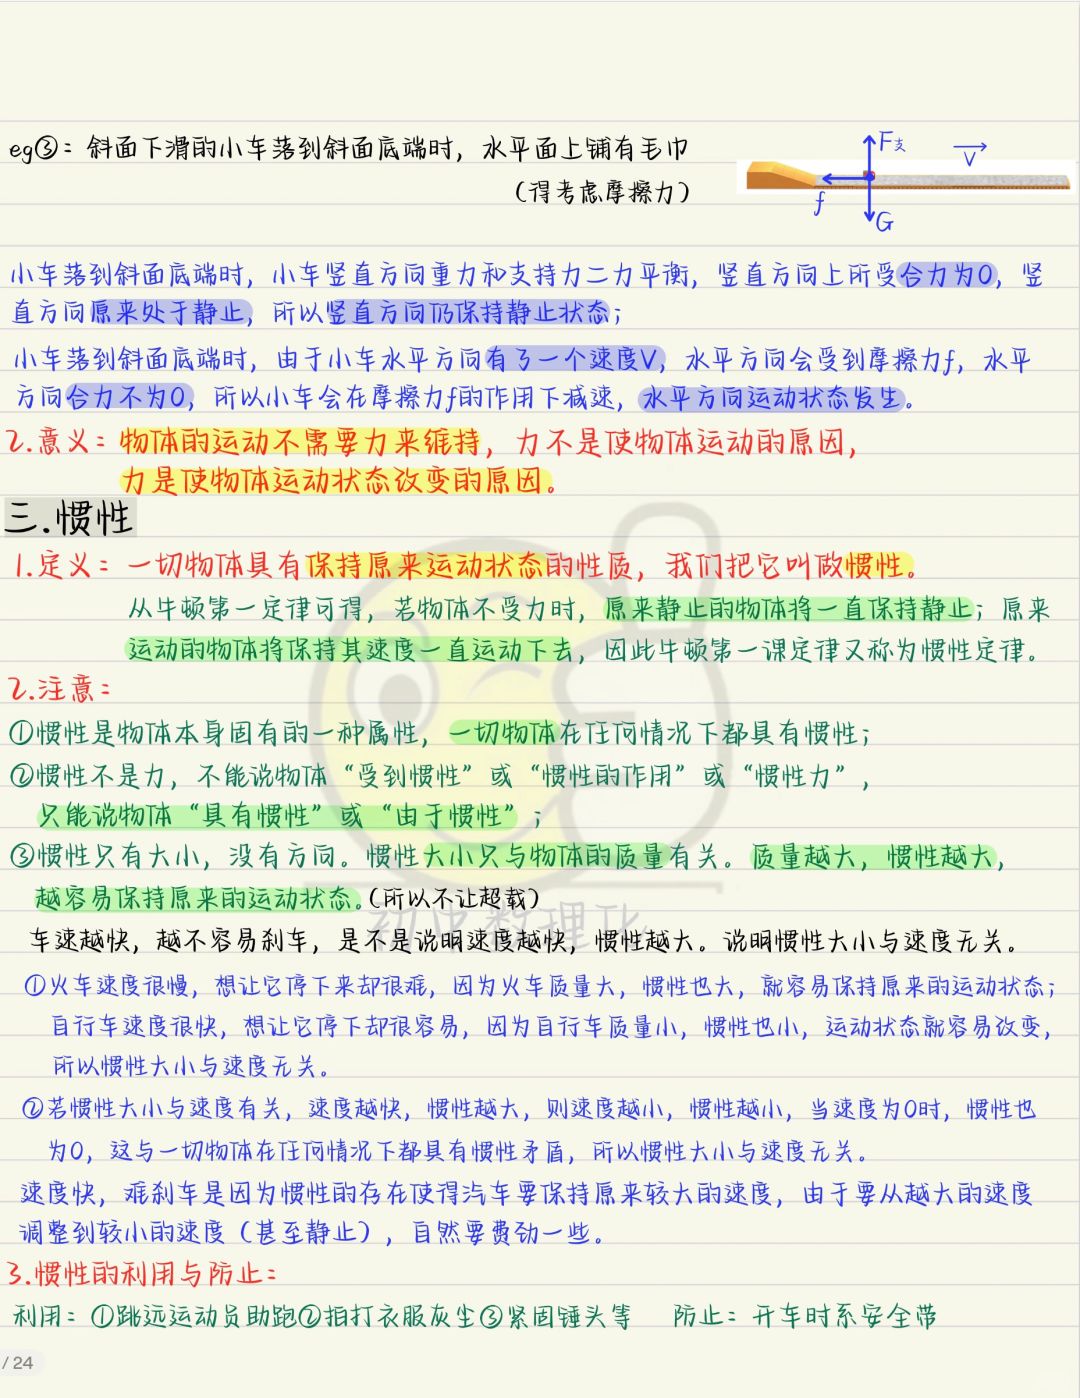 eg③：斜面下滑的小车落到斜面底端时，水平面上铺有毛巾
（得考虑摩擦力）
F支
V
f
G
小车落到斜面底端时，小车竖直方向重力和支持力二力平衡，竖直方向上所受合力为0，竖
直方向原来处于静止，所以竖直方向仍保持静止状态；
小车落到斜面底端时，由于小车水平方向有了一个速度V，水平方向会受到摩擦力f，水平
方向合力不为0，所以小车会在摩擦力f的作用下减速，水平方向运动状态发生。
2.意义：物体的运动不需要力来维持，力不是使物体运动的原因，
力是使物体运动状态改变的原因。
三.惯性
1.定义：一切物体具有保持原来运动状态的性质，我们把它叫做惯性。
从牛顿第一定律可得，若物体不受力时，原来静止的物体将一直保持静止；原来
运动的物体将保持其速度一直运动下去，因此牛顿第一课定律又称为惯性定律。
2.注意：
①惯性是物体本身固有的一种属性，一切物体在任何情况下都具有惯性；
②惯性不是力，不能说物体“受到惯性”或“惯性的作用”或“惯性力”，
只能说物体“具有惯性”或“由于惯性”；
③惯性只有大小，没有方向。惯性大小只与物体的质量有关。质量越大，惯性越大，
越容易保持原来的运动状态。（所以不让超载）
初中数理化
车速越快，越不容易刹车，是不是说明速度越快，惯性越大。说明惯性大小与速度无关。
①火车速度很慢，想让它停下来却很难，因为火车质量大，惯性也大，就容易保持原来的运动状态；
自行车速度很快，想让它停下却很容易，因为自行车质量小，惯性也小，运动状态就容易改变，
所以惯性大小与速度无关。
②若惯性大小与速度有关，速度越快，惯性越大，则速度越小，惯性越小，当速度为0时，惯性也
为0，这与一切物体在任何情况下都具有惯性矛盾，所以惯性大小与速度无关。
速度快，难刹车是因为惯性的存在使得汽车要保持原来较大的速度，由于要从越大的速度
调整到较小的速度（甚至静止），自然要费劲一些。
3.惯性的利用与防止：
利用：①跳远运动员助跑②拍打衣服灰尘③紧固锤头等 防止：开车时系安全带
/ 24